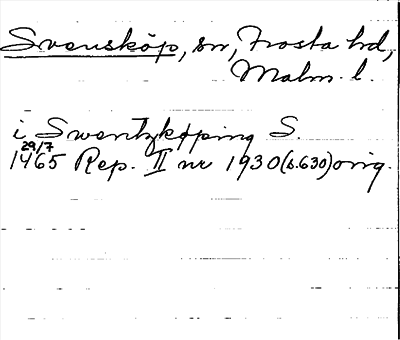 Svensköp, sn, Frosta hd,
Malm. l.
i Swentzkøping S.
29/7
1465 Rep. II nr 1930 (s. 630) orig.